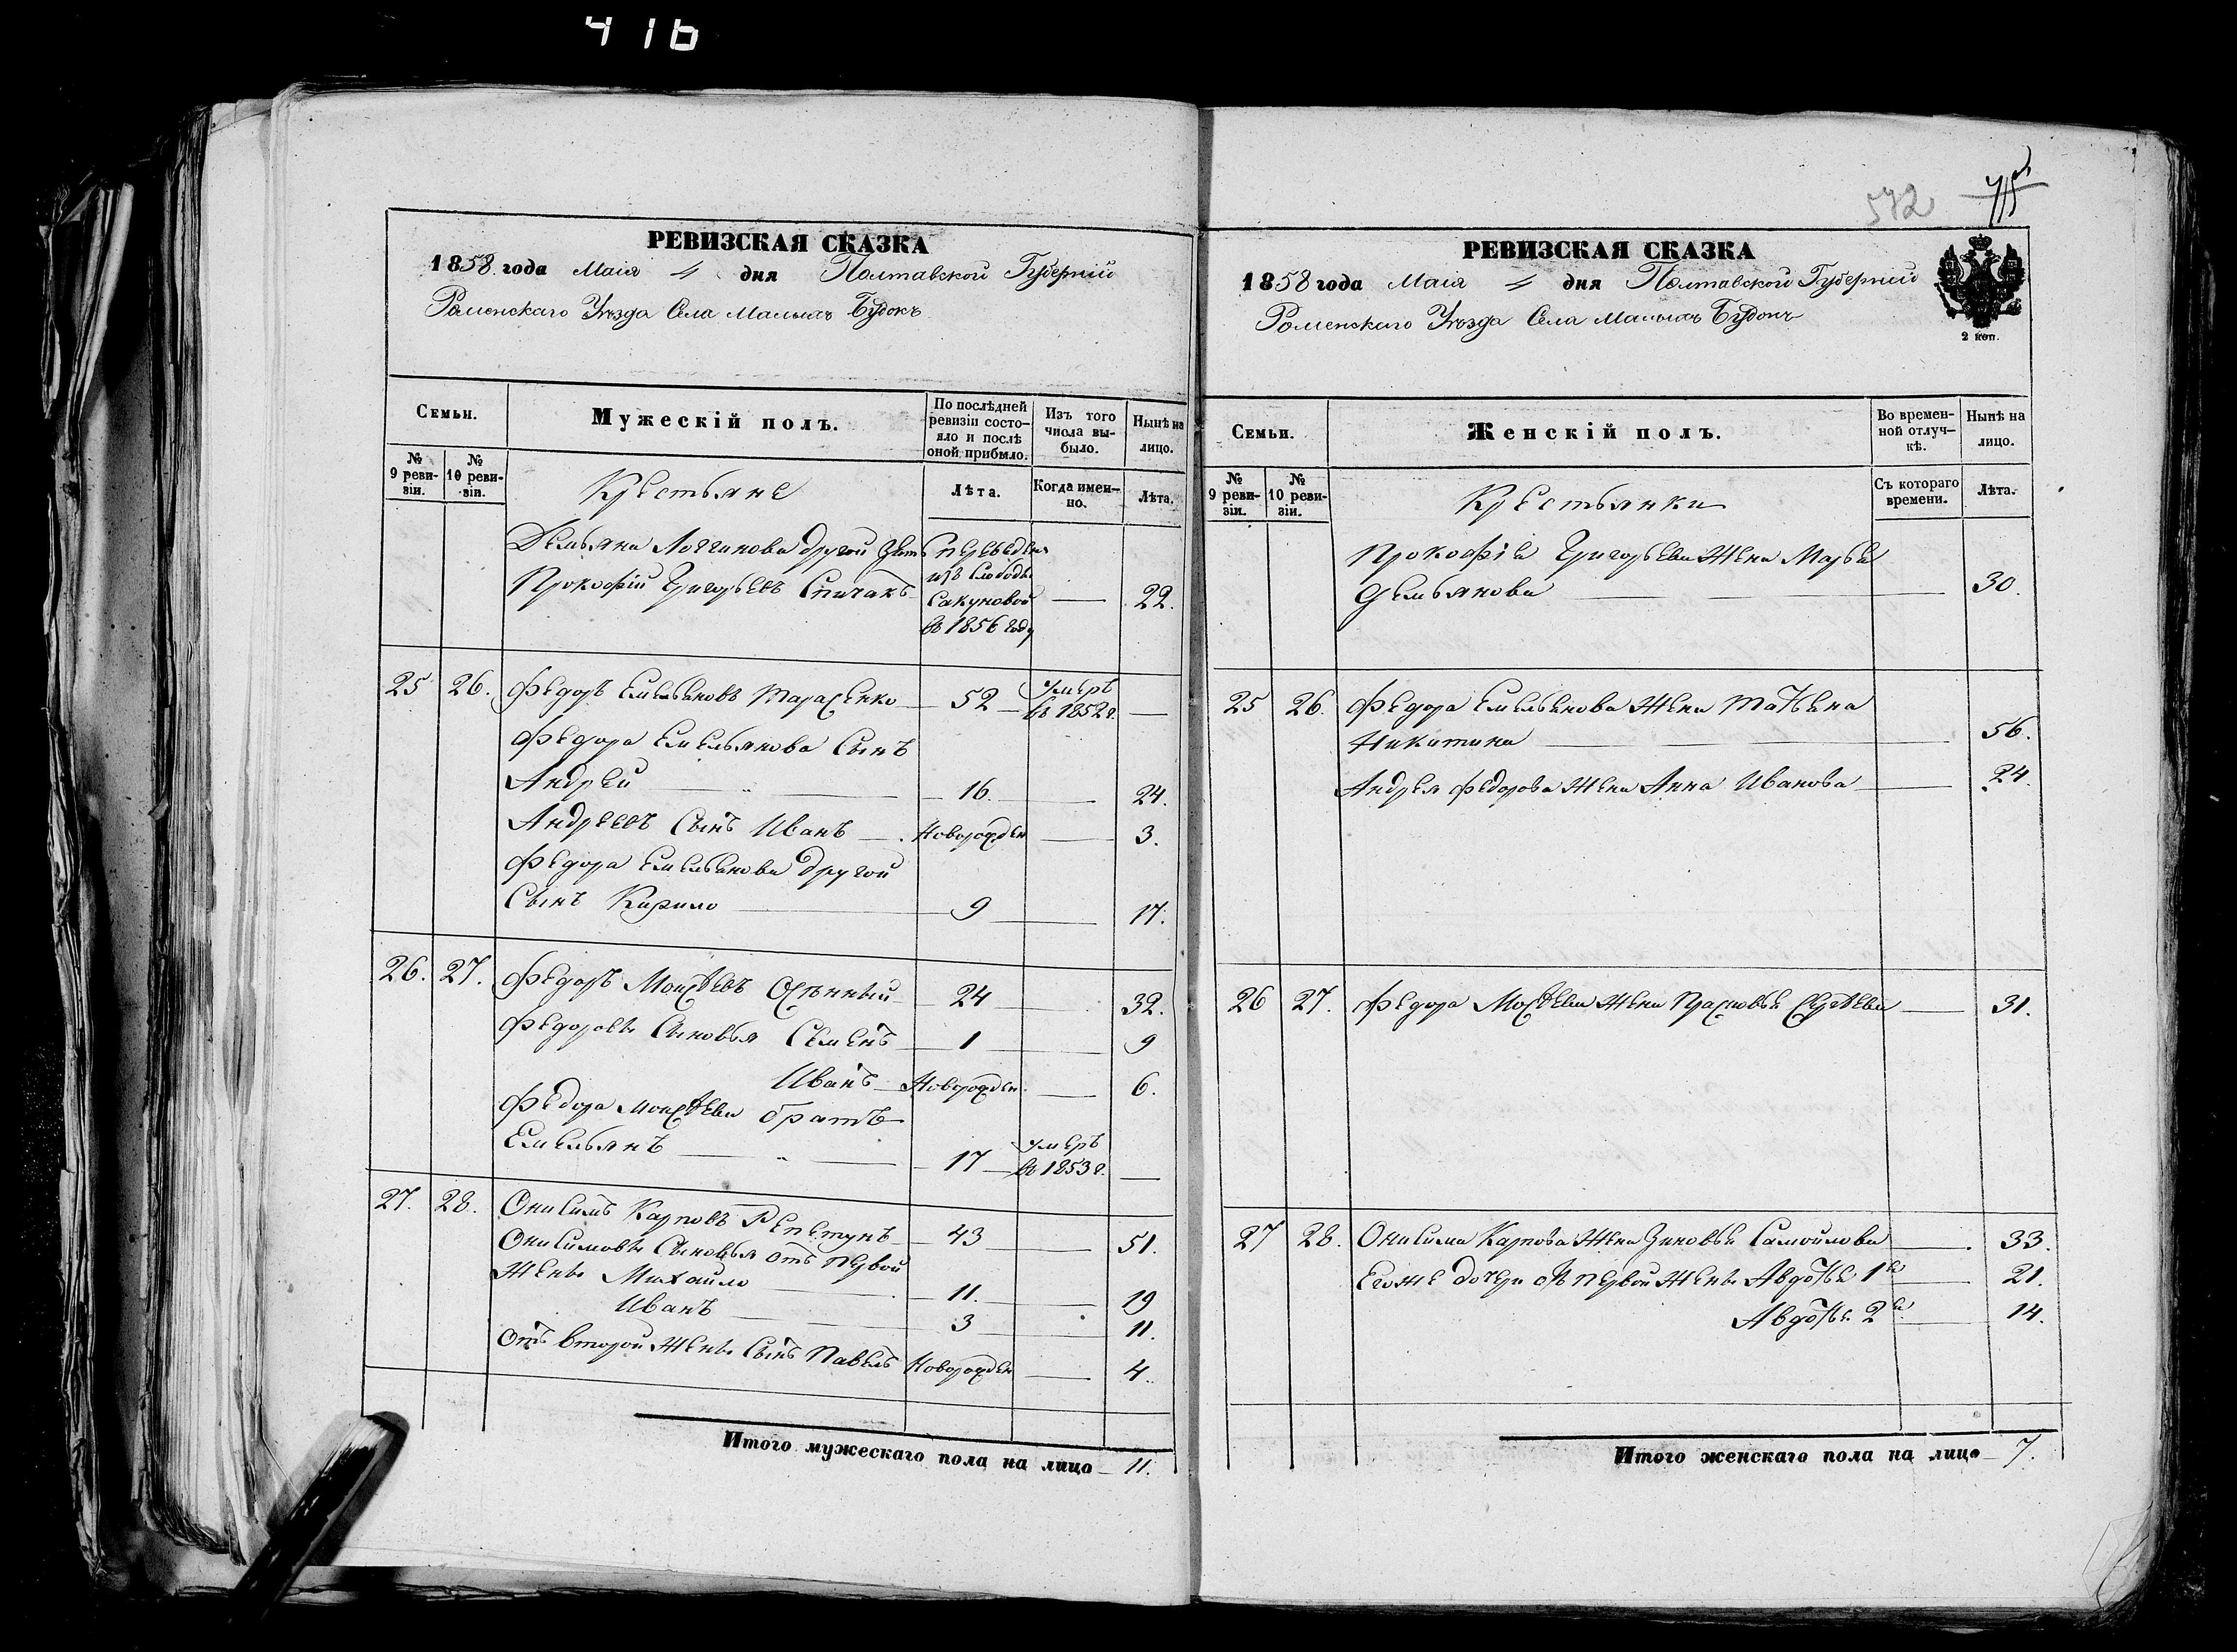 416
572
715
РЕВИЗСКАЯ СКАЗКА
1858. года Маія 4 дня Полтавской Губерніи
Роменскаго Уѣзда Села Малыхъ Будокъ
Семьи.
Мужескій полъ.
По послѣдней ревизіи состояло и послѣ оной прибыло.
Изъ того числа выбыло.
Нынѣ на лицо.
№ 9 ревизіи.
№ 10 ревизіи.
Крестьяне
Лѣта.
Когда именно.
Лѣта.
Демьяна Логгинова другой зять
Прокофій Григорьевъ Спичакъ
переведен изъ Слободы Сакуновой въ 1856 году — 22.
25 26. Федоръ Емельяновъ Тарасенко — 52 — умеръ въ 1852 г. —
Федора Емельянова Сынъ
Андрей — 16. — 24.
Андреевъ Сынъ Иванъ — Новорожден — 3.
Федора Емельянова другой
Сынъ Кирило — 9 — 17.
26. 27. Федоръ Моисѣевъ — 24 — 32.
Федоровы Сыновья Семенъ — 1 — 9
Иванъ — Новорожден. — 6.
Федора Моисѣева братъ
Емельянъ — 17 — умеръ въ 1853 г. —
27. 28. Онисимъ Карповъ Репетунъ — 43 — 51.
Онисимовы Сыновья отъ первой
жены Михайло — 11. — 19
Иванъ — 3 — 11.
Отъ второй жены Сынъ Павелъ Новорожден — 4.
Итого мужескаго пола на лицо — 11.
РЕВИЗСКАЯ СКАЗКА
1858 года Маія 4 дня Полтавской Губерніи
Роменскаго Уѣзда Села Малыхъ Будокъ
2 коп.
Семьи.
Женскій полъ.
Во временной отлучкѣ.
Нынѣ на лицо.
№ 9 ревизіи.
№ 10 ревизіи.
Крестьянки
Съ котораго времени.
Лѣта.
Прокофія Григорьева жена Марья
Демьянова — 30.
25 26. Федора Емельянова жена Татьяна
Никитина — 56.
Андрея Федорова жена Анна Иванова — 24.
26 27. Федора Мосѣева жена Прасковья Сергѣева — 31.
27 28. Онисима Карпова жена Зиновья Самойлова — 33.
Его же дочери отъ первой жены Авдотья 1я — 21.
Авдотья 2я — 14.
Итого женскаго пола на лицо — 7.